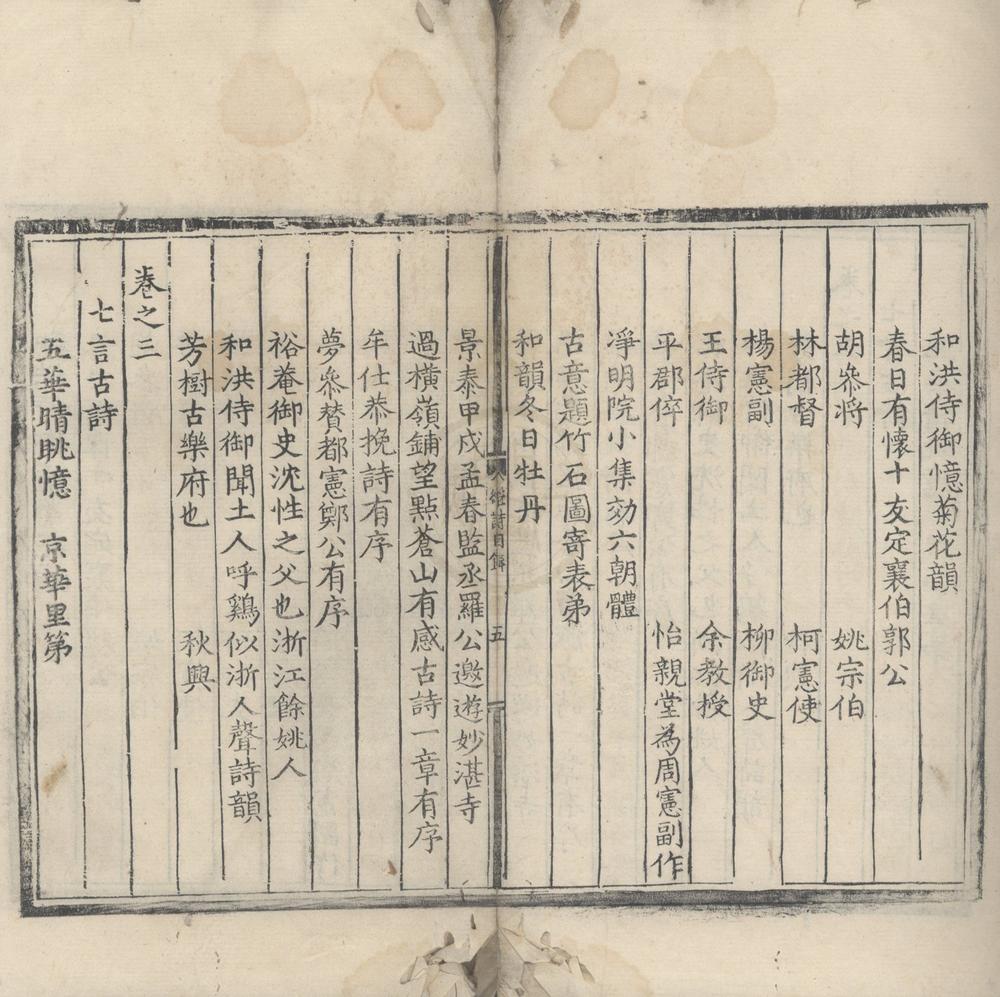 和洪侍御憶菊花韻
春日有懷十友定襄伯郭公
胡叅将 姚宗伯
林都督 柯憲使
楊憲副 柳御史
王侍御 余教授
平郡倅 怡親堂為周憲副作
凈明院小集効六朝體
古意題竹石圖寄表弟
和韻冬日牡丹
詩目錄 五
景泰甲戍孟春監丞羅公邀遊妙湛寺
過橫嶺鋪望點蒼山有感古詩一章有序
牟仕恭挽詩有序
夢叅賛都憲鄭公有序
裕菴御史沈性之父也浙江餘姚人
和洪侍御聞土人呼鷄似浙人聲詩韻
芳樹古樂府也 秋興
卷之三
七言古詩
五華晴眺憶 京華里第